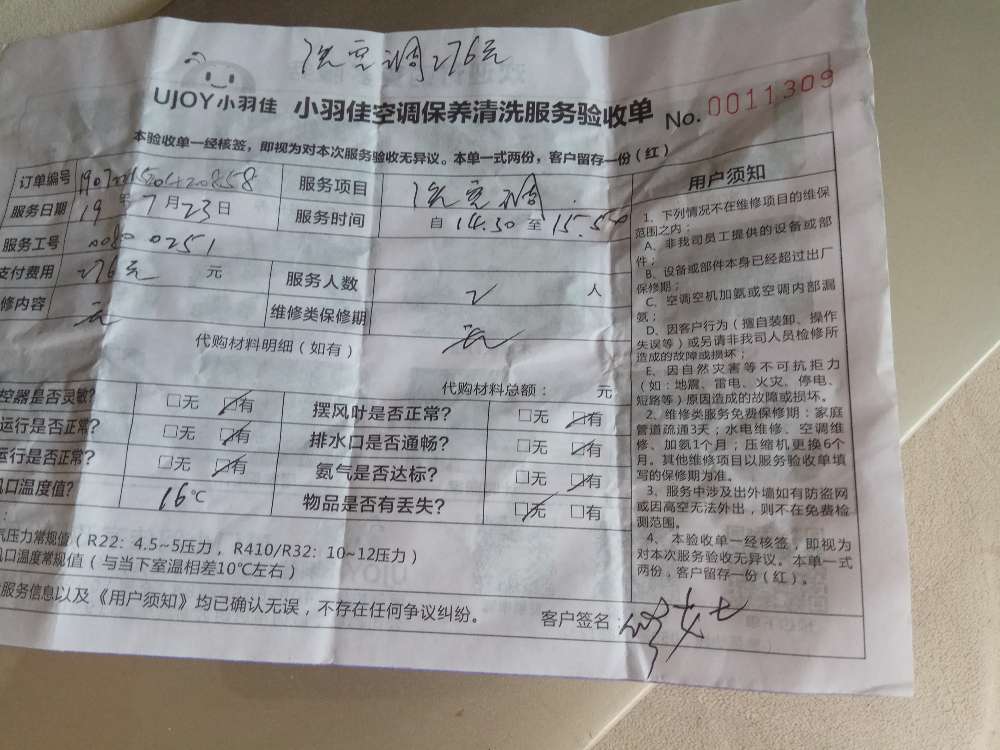 洗空调276元
UJOY小羽佳 小羽佳空调保养清洗服务验收单 No. 0011309
本验收单一经核签，即视为对本次服务验收无异议。本单一式两份，客户留存一份（红）
订单编号 服务项目 洗空调
服务日期 19年7月23日 服务时间 自14.30至15.50
服务工号 0251
支付费用 276元 元 服务人数 2 人
修内容 无 维修类保修期 无
代购材料明细（如有）
代购材料总额： 元
控器是否灵敏? 口无 口有 摆风叶是否正常? 口无 口有
运行是否正常? 口无 口有 排水口是否通畅? 口无 口有
运行是否正常? 口无 口有 氨气是否达标? 口无 口有
风口温度值? 16℃ 物品是否有丢失? 口无 口有
气压力常规值（R22：4.5~5压力，R410/R32：10~12压力）
风口温度常规值（与当下室温相差10℃左右）
服务信息以及《用户须知》均已确认无误，不存在任何争议纠纷。 客户签名： 女士
用户须知
1、下列情况不在维修项目的维保
范围之内：
A、非我司员工提供的设备或部
件；
B、设备或部件本身已经超过出厂
保修期；
C、空调空机加氨或空调内部漏
氨；
D、因客户行为（擅自装卸、操作
失误等）或另请非我司人员检修所
造成的故障或损坏；
E、因自然灾害等不可抗拒力
（如：地震、雷电、火灾、停电、
短路等）原因造成的故障或损坏。
2、维修类服务免费保修期：家庭
管道疏通3天；水电维修、空调维
修、加氨1个月；压缩机更换6个
月。其他维修项目以服务验收单填
写的保修期为准。
3、服务中涉及出外墙如有防盗网
或因高空无法外出，则不在免费检
测范围。
4、本验收单一经核签，即视为
对本次服务验收无异议。本单一式
两份，客户留存一份（红）。